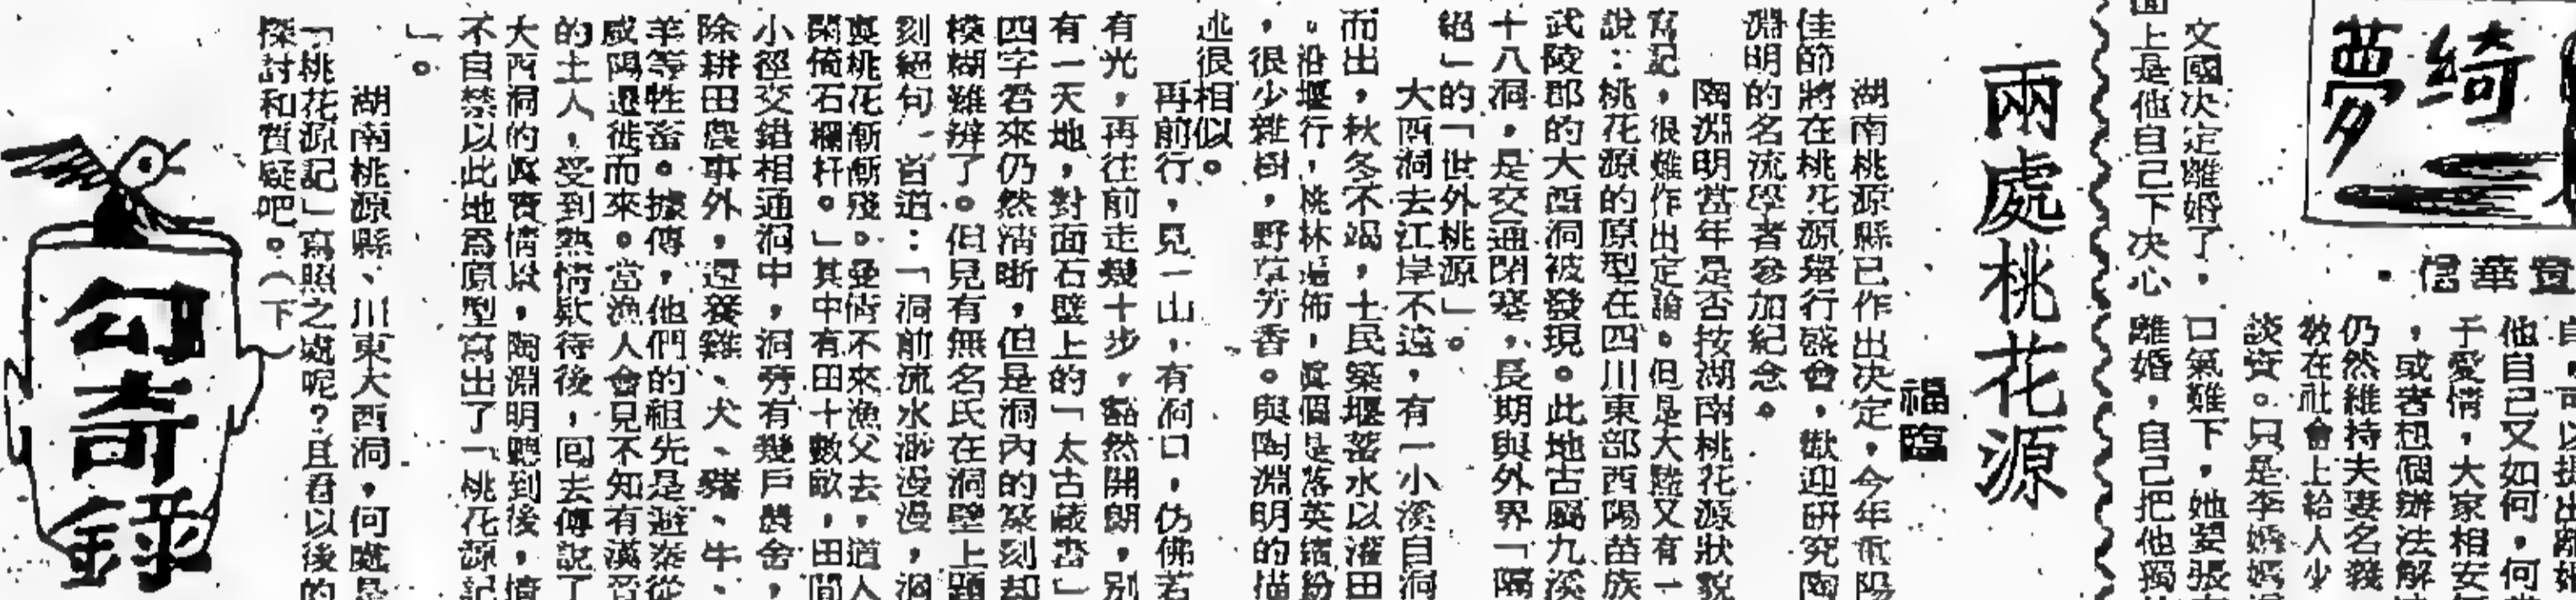 綺夢
信華
自
他自己又如何，何
于愛情，大家相安
，或者想個辦法解
仍然維持夫妻名義
敎在社會上給人少
談資。只是李婚姻
文國決定離婚了，口氣難下，她要張
面上是他自己下決心離婚，自己把他獨
兩處桃花源
福臨
湖南桃源縣已作出決定，今年重陽
佳節將在桃花源舉行盛會，歡迎研究陶
淵明的名流學者參加紀念。
陶淵明當年是否按湖南桃花源狀貌
寫記，很難作出定論。但是大陸又有一
說：桃花源的原型在四川東部酉陽苗族
武陵郡的大酉洞被發現。此地古屬九溪
十八洞，是交通閉塞、長期與外界「隔
絕」的「世外桃源」。
大酉洞去江岸不遠，有一小溪自洞
而出，秋冬不竭，土民築堰蓄水以灌田
。沿堰行，桃林遍佈，眞個是落英繽紛
，很少雜樹，野草芳香。與陶淵明的描
述很相似。
再前行，見一山，有洞口，仿佛若
有光，再往前走幾十步，豁然開朗，別
有一天地，對面石壁上的「太古藏書」
四字看來仍然清晰，但是洞內的篆刻却
模糊難辨了。但見有無名氏在洞壁上題
刻絕句一首道：「洞前流水渺漫漫，洞
裏桃花漸漸殘。曼倩不來漁父去，道人
閑倚石欄杆。」其中有田十數畝，田間
小徑交錯相通洞中，洞旁有幾戶農舍，
除耕田農事外，還養雞、犬、豬、牛、
羊等牲畜。據傳，他們的祖先是避秦從
咸陽遷徙而來。當漁人會見不知有漢晉
的土人，受到熱情欵待後，回去傳說了
大酉洞的眞實情景，陶淵明聽到後，情
不自禁以此地爲原型寫出了「桃花源記
」。
湖南桃源縣、川東大酉洞，何處是
「桃花源記」寫照之處呢？且看以後的
探討和質疑吧。（下）
勾奇錄